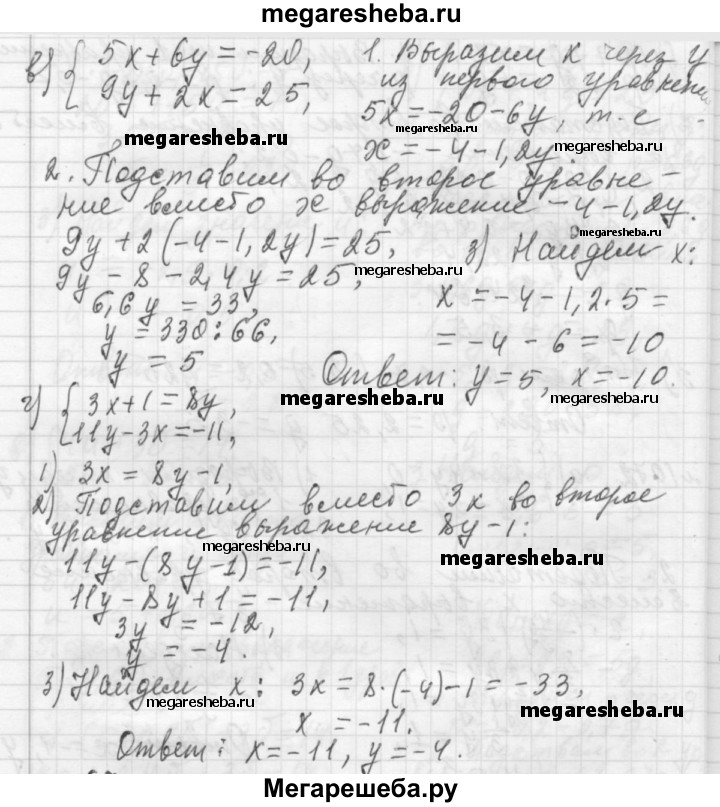 megaresheba.ru
в) { 5x + 6y = -20, 1. Выразим x через y
9y + 2x = 25, из первого уравнени
5x = -20 - 6y, т.е
megaresheba.ru megaresheba.ru
x = -4 - 1,2y.
2. Подставим во второе уравне-
ние вместо x выражение -4 - 1,2y.
megaresheba.ru
9y + 2(-4 - 1,2y) = 25, 3) Найдем x:
megaresheba.ru
9y - 8 - 2,4y = 25,
6,6y = 33, x = -4 - 1,2·5 =
y = 330:66, = -4 - 6 = -10
y = 5 Ответ: y = 5, x = -10.
megaresheba.ru megaresheba.ru
г) { 3x + 1 = 8y,
11y - 3x = -11,
1) 3x = 8y - 1,
2) Подставим вместо 3x во второе
уравнение выражение 8y - 1:
megaresheba.ru megaresheba.ru
11y - (8y - 1) = -11,
11y - 8y + 1 = -11,
3y = -12,
y = -4.
3) Найдем x: 3x = 8·(-4) - 1 = -33,
megaresheba.ru megaresheba.ru
x = -11.
Ответ: x = -11, y = -4.
Мегарешеба.ру